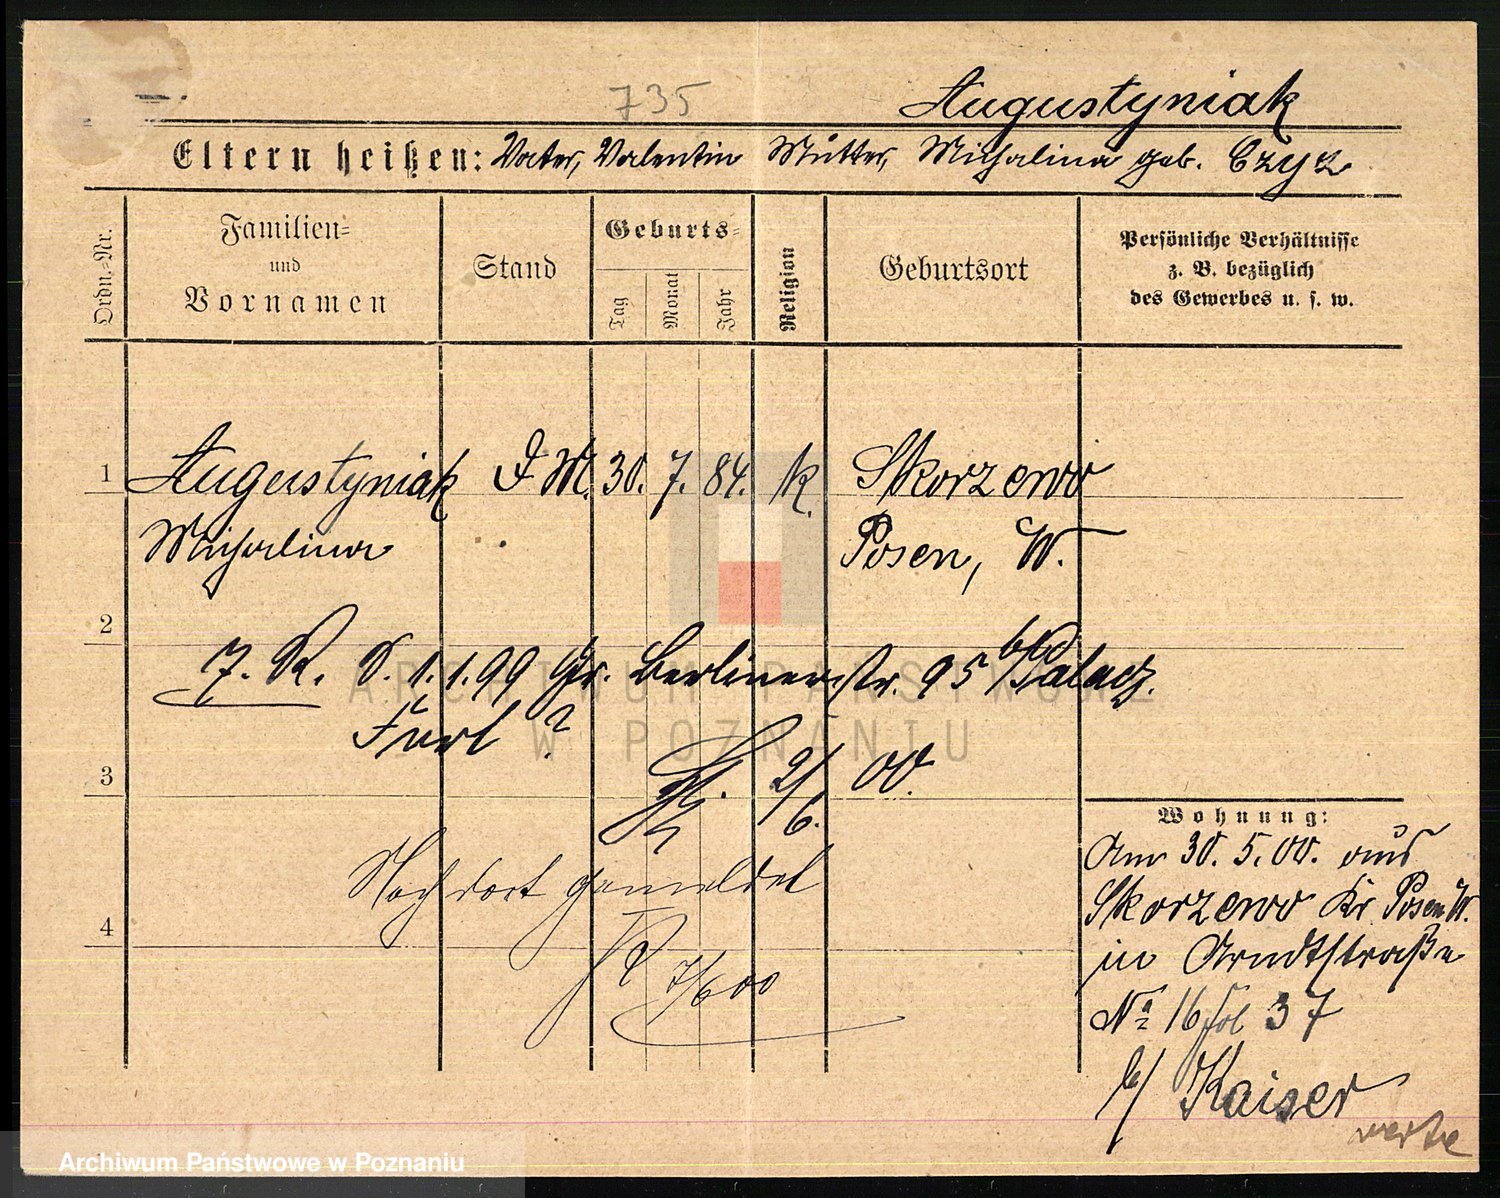 735
Augustyniak
Eltern heißen: Vater, Valentin Mutter, Michalina geb. Czyz
Ordn.-Nr.
Familien-
und
Vornamen
Stand
Geburts-
Tag
Monat
Jahr
Religion
Geburtsort
Persönliche Verhältnisse
z. B. bezüglich
des Gewerbes u. s. w.
1 Augustyniak D. M. 30. 7. 84. k. Skorzewo
Michalina Posen, W.
2
7. R. d. 1.1.99 Gr. Berlinerstr. 95 b/ Palacz.
Furl ?
2/6. 00.
3
Noch dort gemeldet
4
7/6 00
Wohnung:
Am 30. 5. 00. aus
Skorzewo Kr. Posen W.
in Arndtstraße
No 16 fol 37
b/ Kaiser
ARCHIWUM PAŃSTWOWE
W POZNANIU
Archiwum Państwowe w Poznaniu